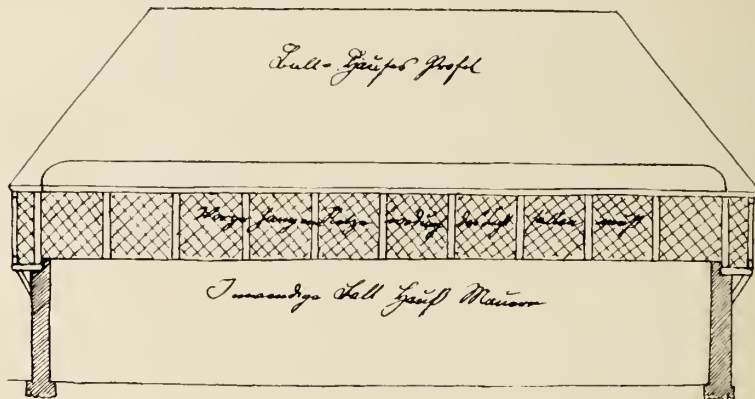 Ball-Hauses Profil
Vorge hangene Netze wodurch das Licht fallen muß
Inwendige Ball Hauß Mauern